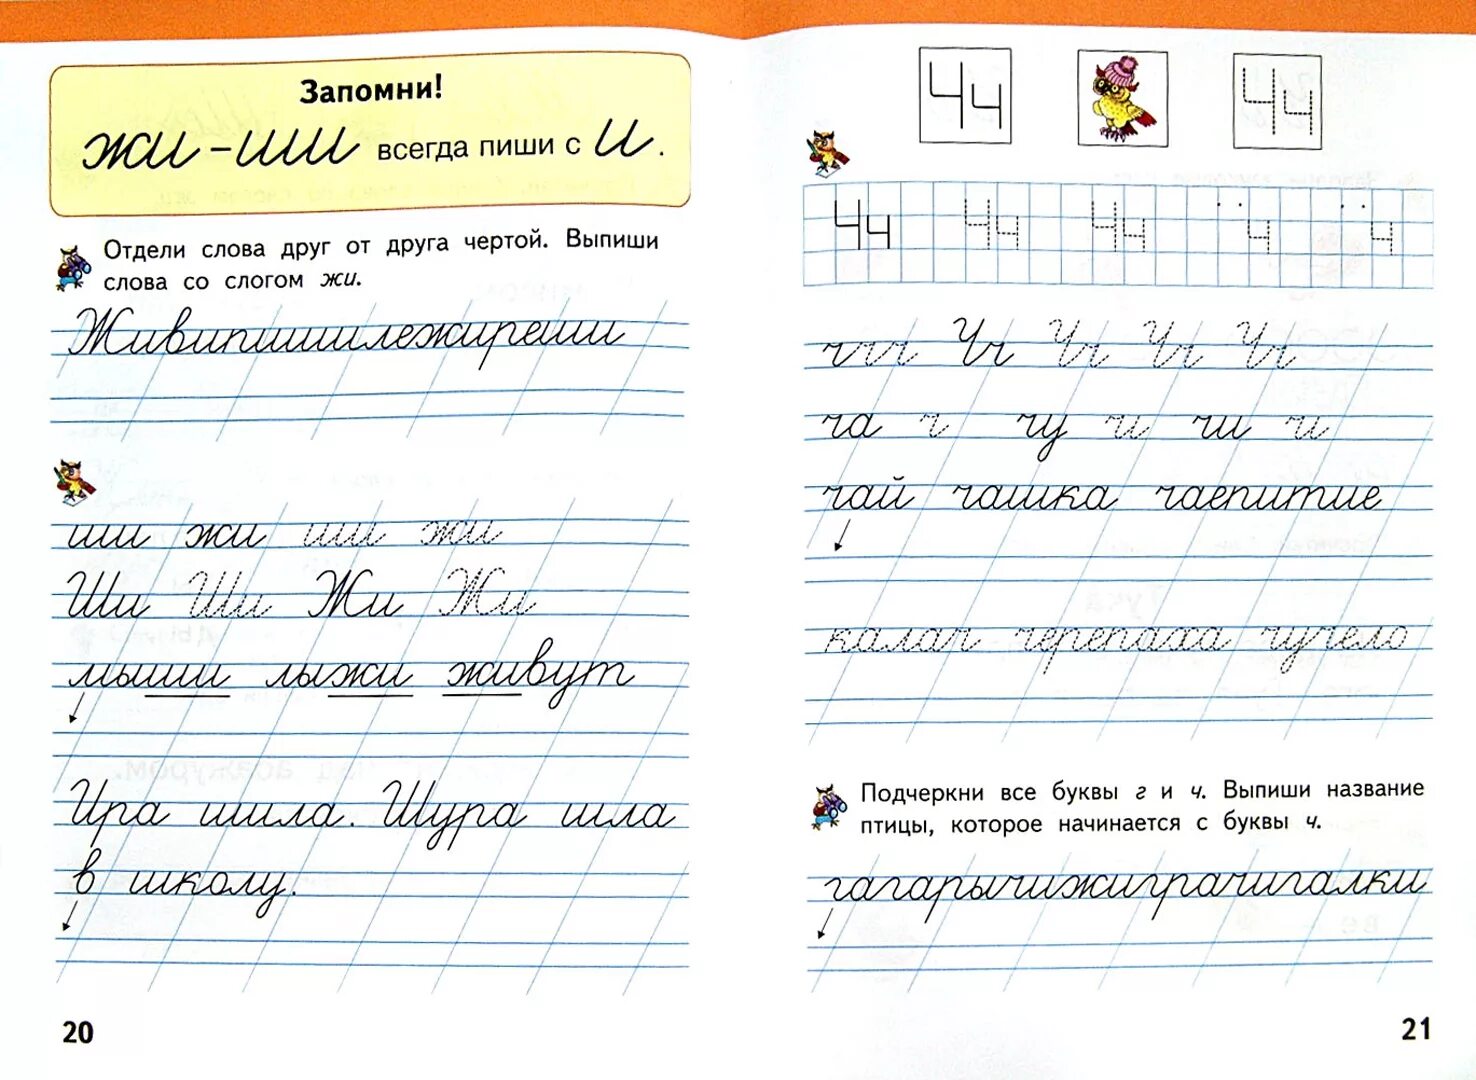 Запомни!
жи - ши всегда пиши с и.
Отдели слова друг от друга чертой. Выпиши
слова со слогом жи.
Живипишилежиреши
ши жи ши жи
Ши Ши Жи Жи
мыши лыжи живут
Ира шила. Шура шла
в школу.
20
Чч Чч
Чч Чч Чч ч ч
ччч Чч Чч Чч Чч
ча ч чу ч чи ч
чай чашка чаепитие
калач черепаха чучело
Подчеркни все буквы г и ч. Выпиши название
птицы, которое начинается с буквы ч.
гагарычижиграчигалки
21